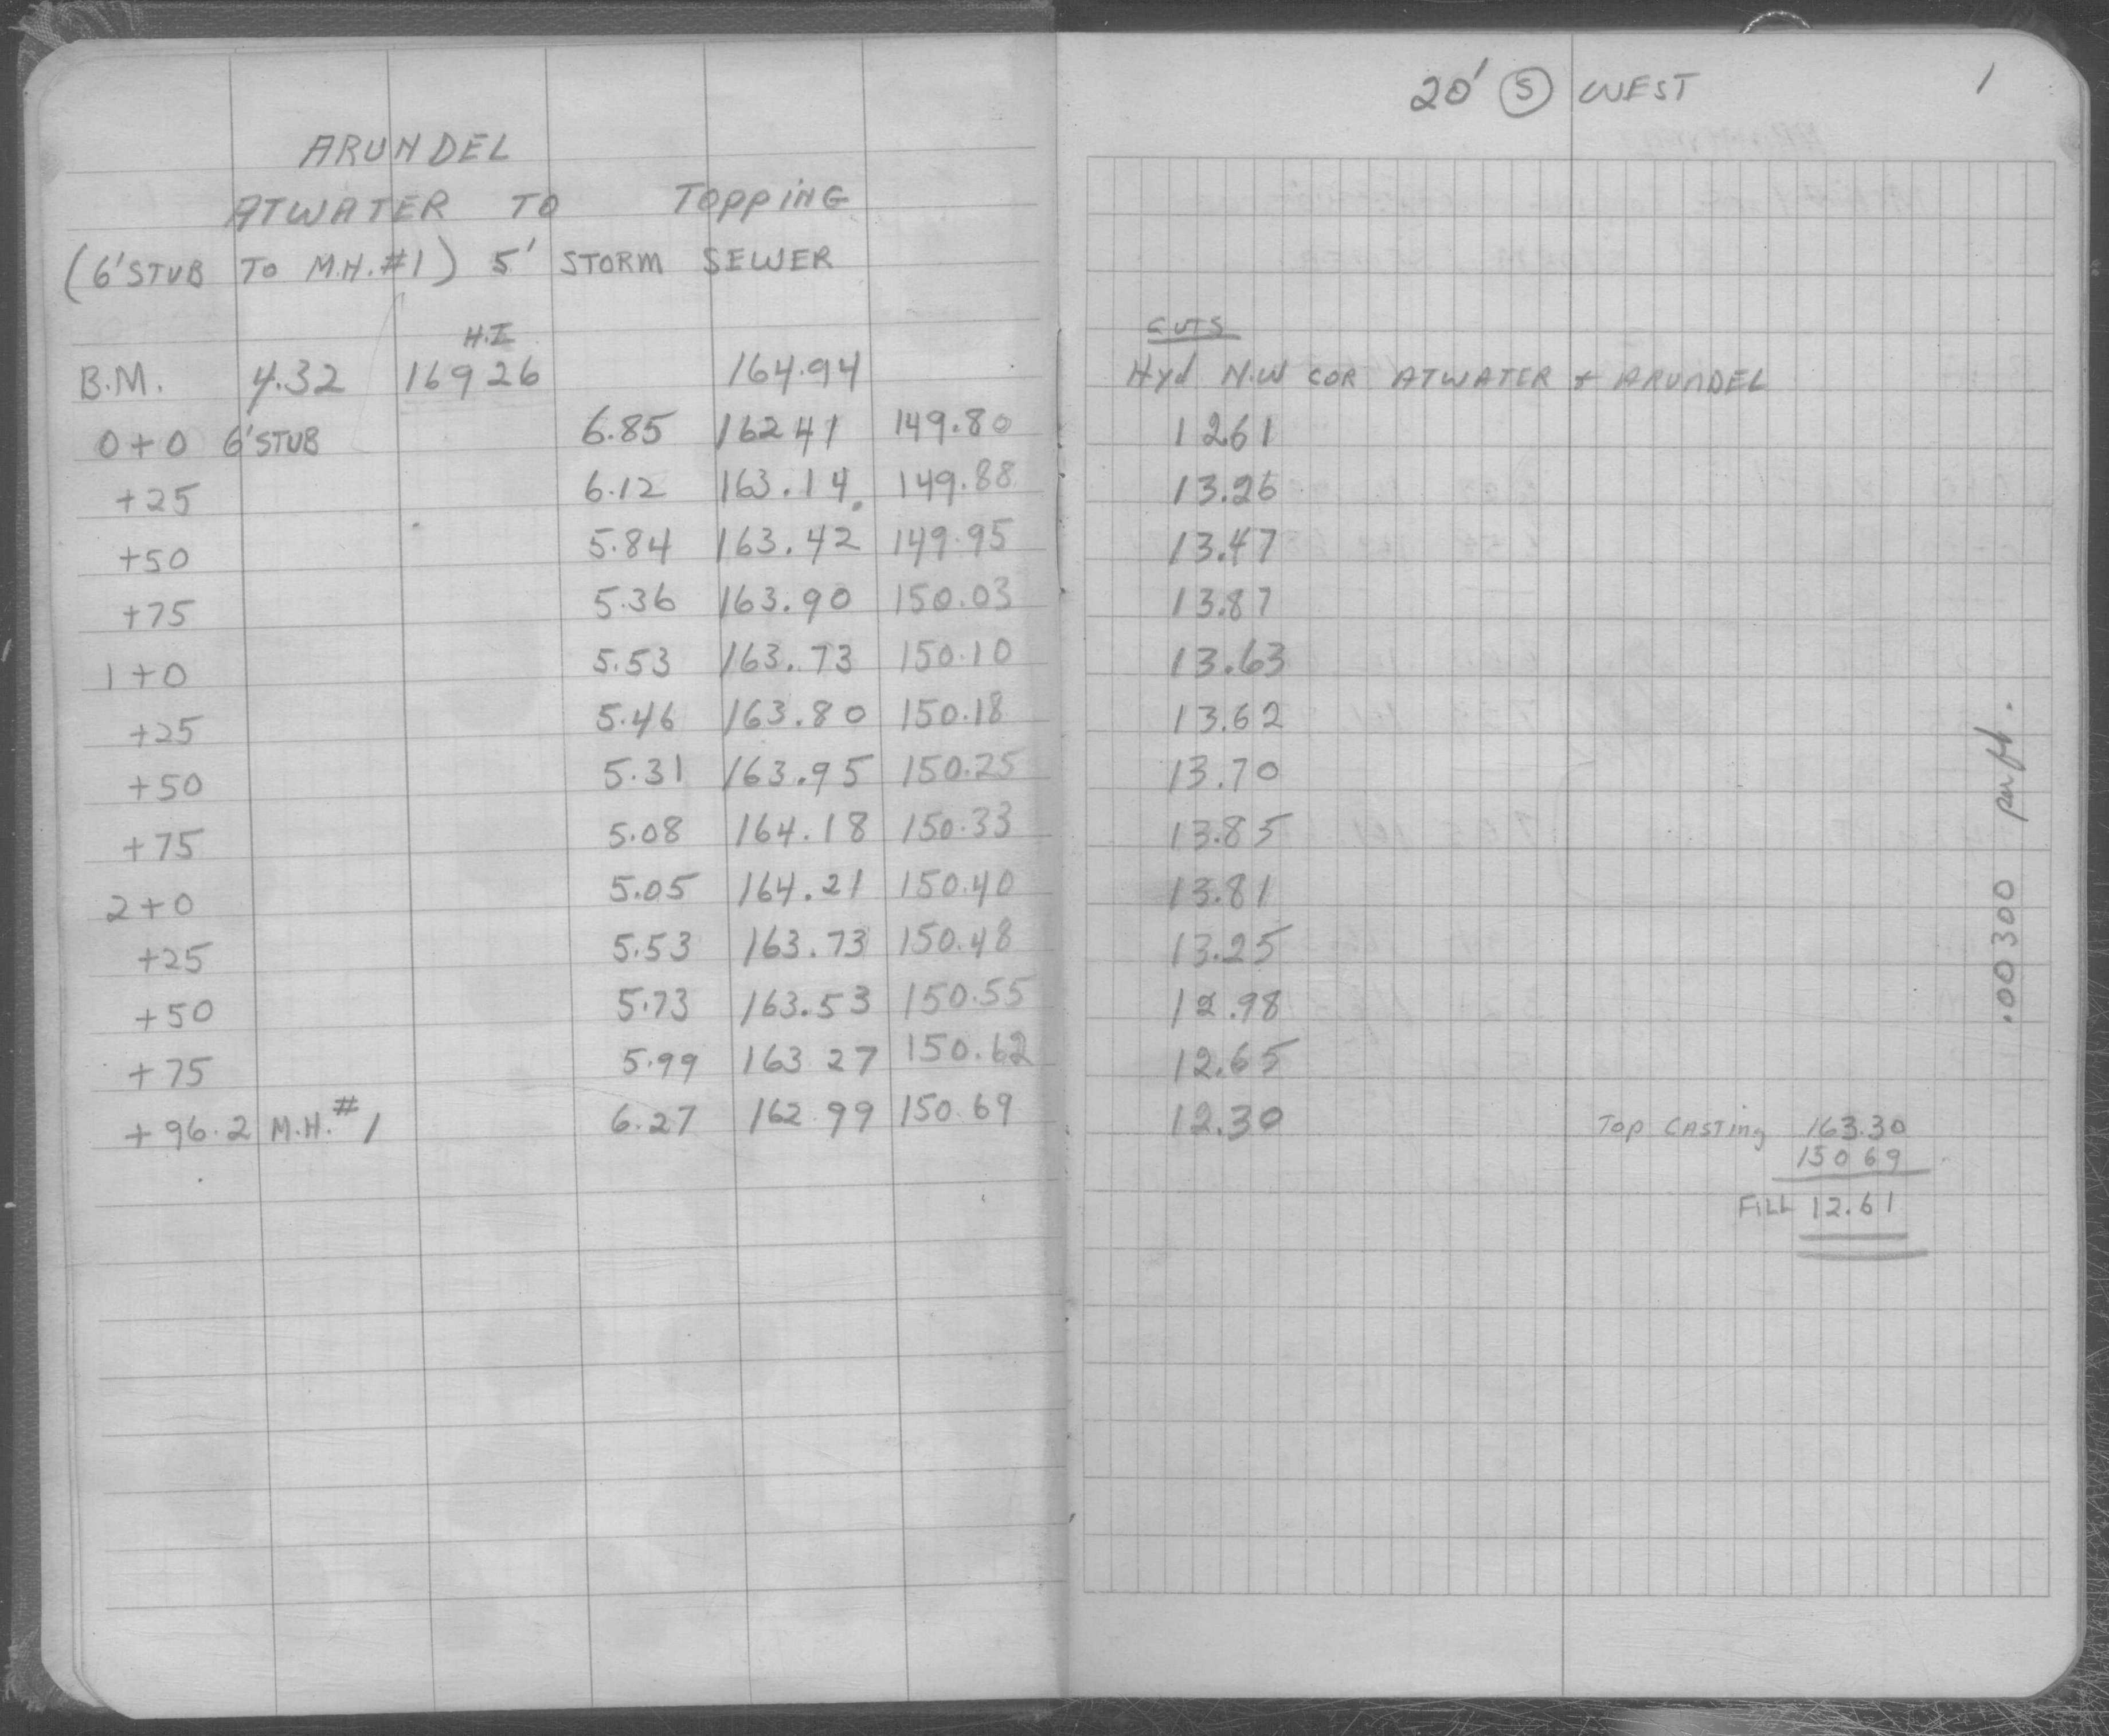 ARUNDEL
ATWATER TO TOPPING
(6' STUB TO M.H. #1) 5' STORM SEWER
H.I
B.M. 4.32 169 26 164.94
0+0 6' STUB 6.85 162 41 149.80
+25 6.12 163.14 149.88
+50 5.84 163.42 149.95
+75 5.36 163.90 150.03
1+0 5.53 163.73 150.10
+25 5.46 163.80 150.18
+50 5.31 163.95 150.25
+75 5.08 164.18 150.33
2+0 5.05 164.21 150.40
+25 5.53 163.73 150.48
+50 5.73 163.53 150.55
+75 5.99 163 27 150.62
+96.2 M.H. #1 6.27 162 99 150.69
20' (S) WEST 1
CUTS
Hyd N.W COR ATWATER + ARUNDEL
12 61
13.26
13.47
13.87
13.63
13.62
13.70
13.85
13.81
13.25
12.98
12.65
12.30 Top CASTing 163.30
150 69
FILL 12.61
.00300 per ft.